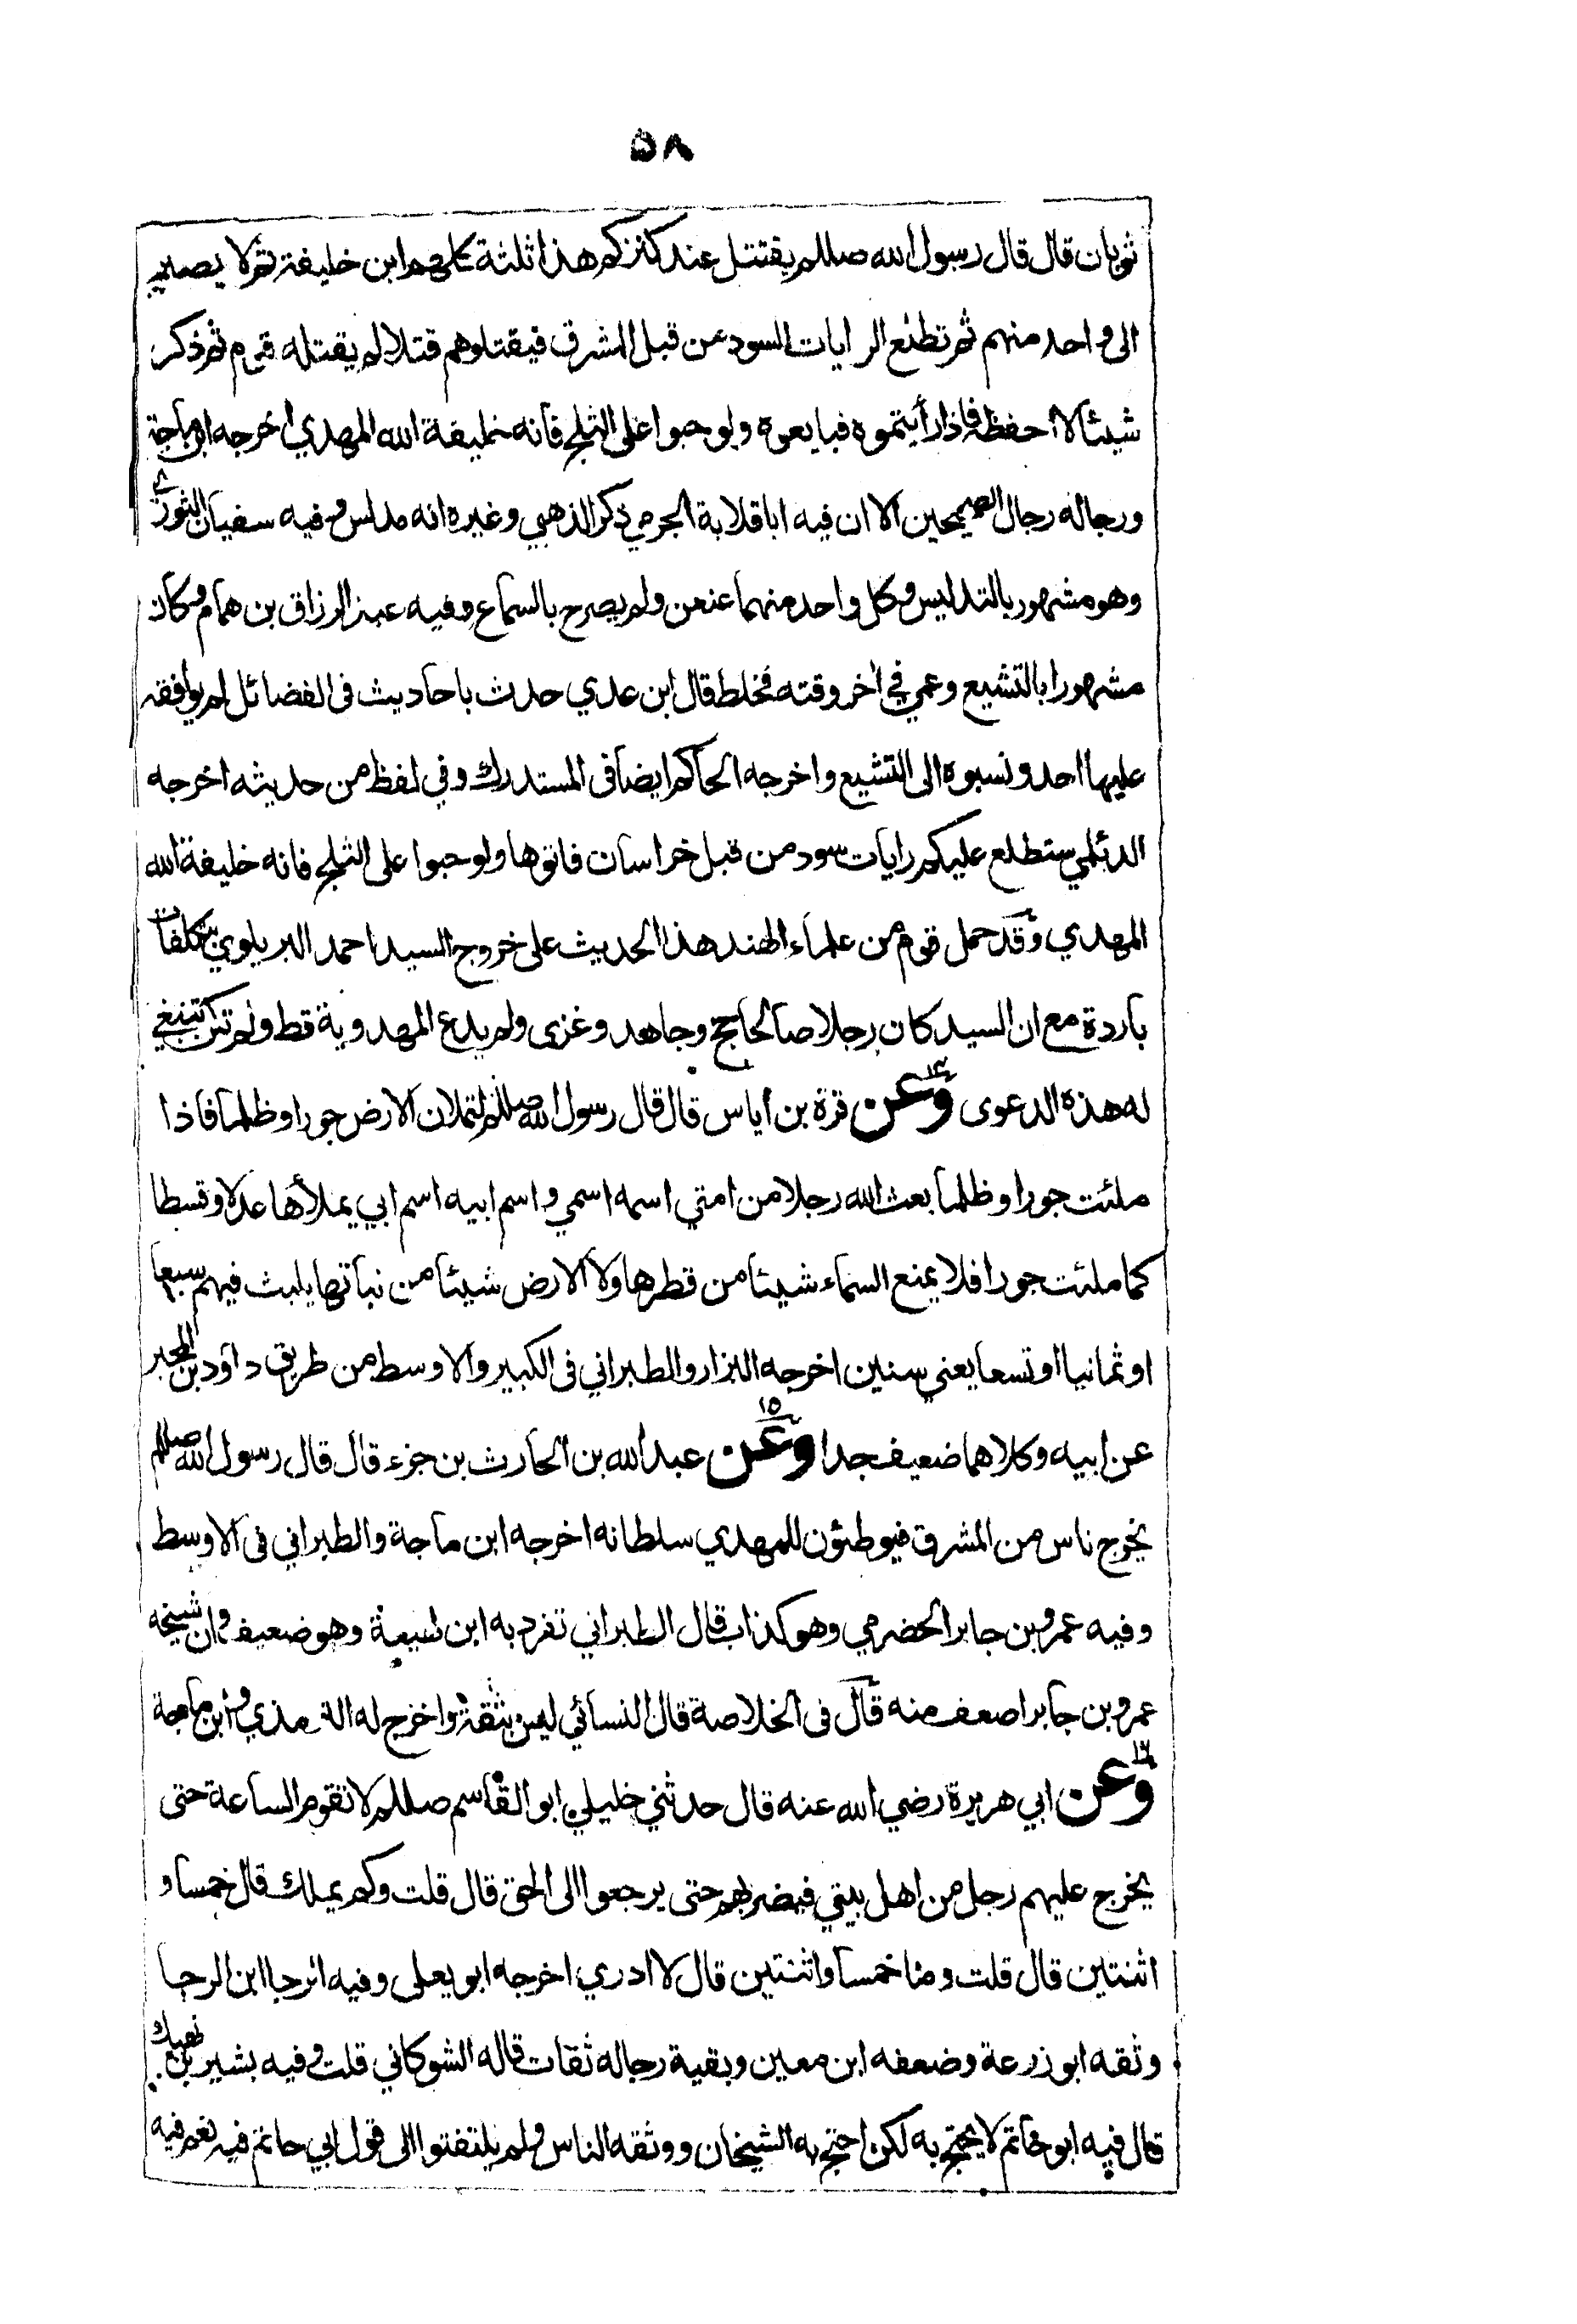 ٥٨
ثوبان قال قال رسول الله صللم يقتتل عند كنزكم هذا ثلثة كلهم ابن خليفة ثم لا يصير
الى واحد منهم ثم تطلع الرايات السود من قبل المشرق فيقتلوهم قتلا لم يقتله قوم ثم ذكر
شيئا لا احفظه فاذا رأيتموه فبايعوه ولو حبوا على الثلج فانه خليفة الله المهدي اخرجه ابن ماجة
ورجاله رجال الصحيحين الا ان فيه ابا قلابة الجرمي ذكر الذهبي وغيره انه مدلس وفيه سفيان الثوري
وهو مشهور بالتدليس وكل واحد منهما عنعن ولم يصرح بالسماع وفيه عبد الرزاق بن همام وكان
مشهورا بالتشيع وعمي في اخر وقته فخلط قال ابن عدي حدث باحاديث فى الفضائل لم يوافقه
عليها احد ونسبوه الى التشيع واخرجه الحاكم ايضا فى المستدرك وفي لفظ من حديثه اخرجه
الدئلمي ستطلع عليكم رايات سود من قبل خراسان فاتوها ولو حبوا على الثلج فانه خليفة الله
المهدي وقد حمل قوم من علماء الهند هذا الحديث على خروج السيد احمد البريلوي بتكلفات
باردة مع ان السيد كان رجلا صالحا حج وجاهد وغزى ولم يدع المهدوية قط ولم تكن تنبغي
له هذه الدعوى ١٤ وعن قرة بن اياس قال قال رسول الله صللم لتملان الارض جورا وظلما فاذا
ملئت جورا وظلما بعث الله رجلا من امتي اسمه اسمي واسم ابيه اسم ابي يملأها عدلا وقسطا
كما ملئت جورا فلا يمنع السماء شيئا من قطرها ولا الارض شيئا من نباتها يلبث فيهم سبعا
او ثمانيا او تسعا يعني سنين اخرجه البزار والطبراني فى الكبير والاوسط من طريق داود بن المحبر
عن ابيه وكلاهما ضعيف جدا ١٥ وعن عبد الله بن الحارث بن جزء قال قال رسول الله صللم
يخرج ناس من المشرق فيوطئون للمهدي سلطانه اخرجه ابن ماجة والطبراني فى الاوسط
وفيه عمرو بن جابر الحضرمي وهو كذاب قال الطبراني تفرد به ابن لهيعة وهو ضعيف وان شيخه
عمرو بن جابر اضعف منه قال فى الخلاصة قال النسائي ليس بثقة واخرج له الترمذي وابن ماجة
١٦ وعن ابي هريرة رضي الله عنه قال حدثني خليلي ابو القاسم صللم لا تقوم الساعة حتى
يخرج عليهم رجل من اهل بيتي فيضربهم حتى يرجعوا الى الحق قال قلت وكم يملك قال خمسا و
اثنتين قال قلت وما خمسا واثنتين قال لا ادري اخرجه ابو يعلى وفيه الرجا ابن الرجا
وثقه ابو زرعة وضعفه ابن معين وبقية رجاله ثقات قاله الشوكاني قلت وفيه بشير بن نهيك
قال فيه ابو حاتم لا يحتج به لكن احتج به الشيخان ووثقه الناس ولم يلتفتوا الى قول ابي حاتم فيه نعم فيه